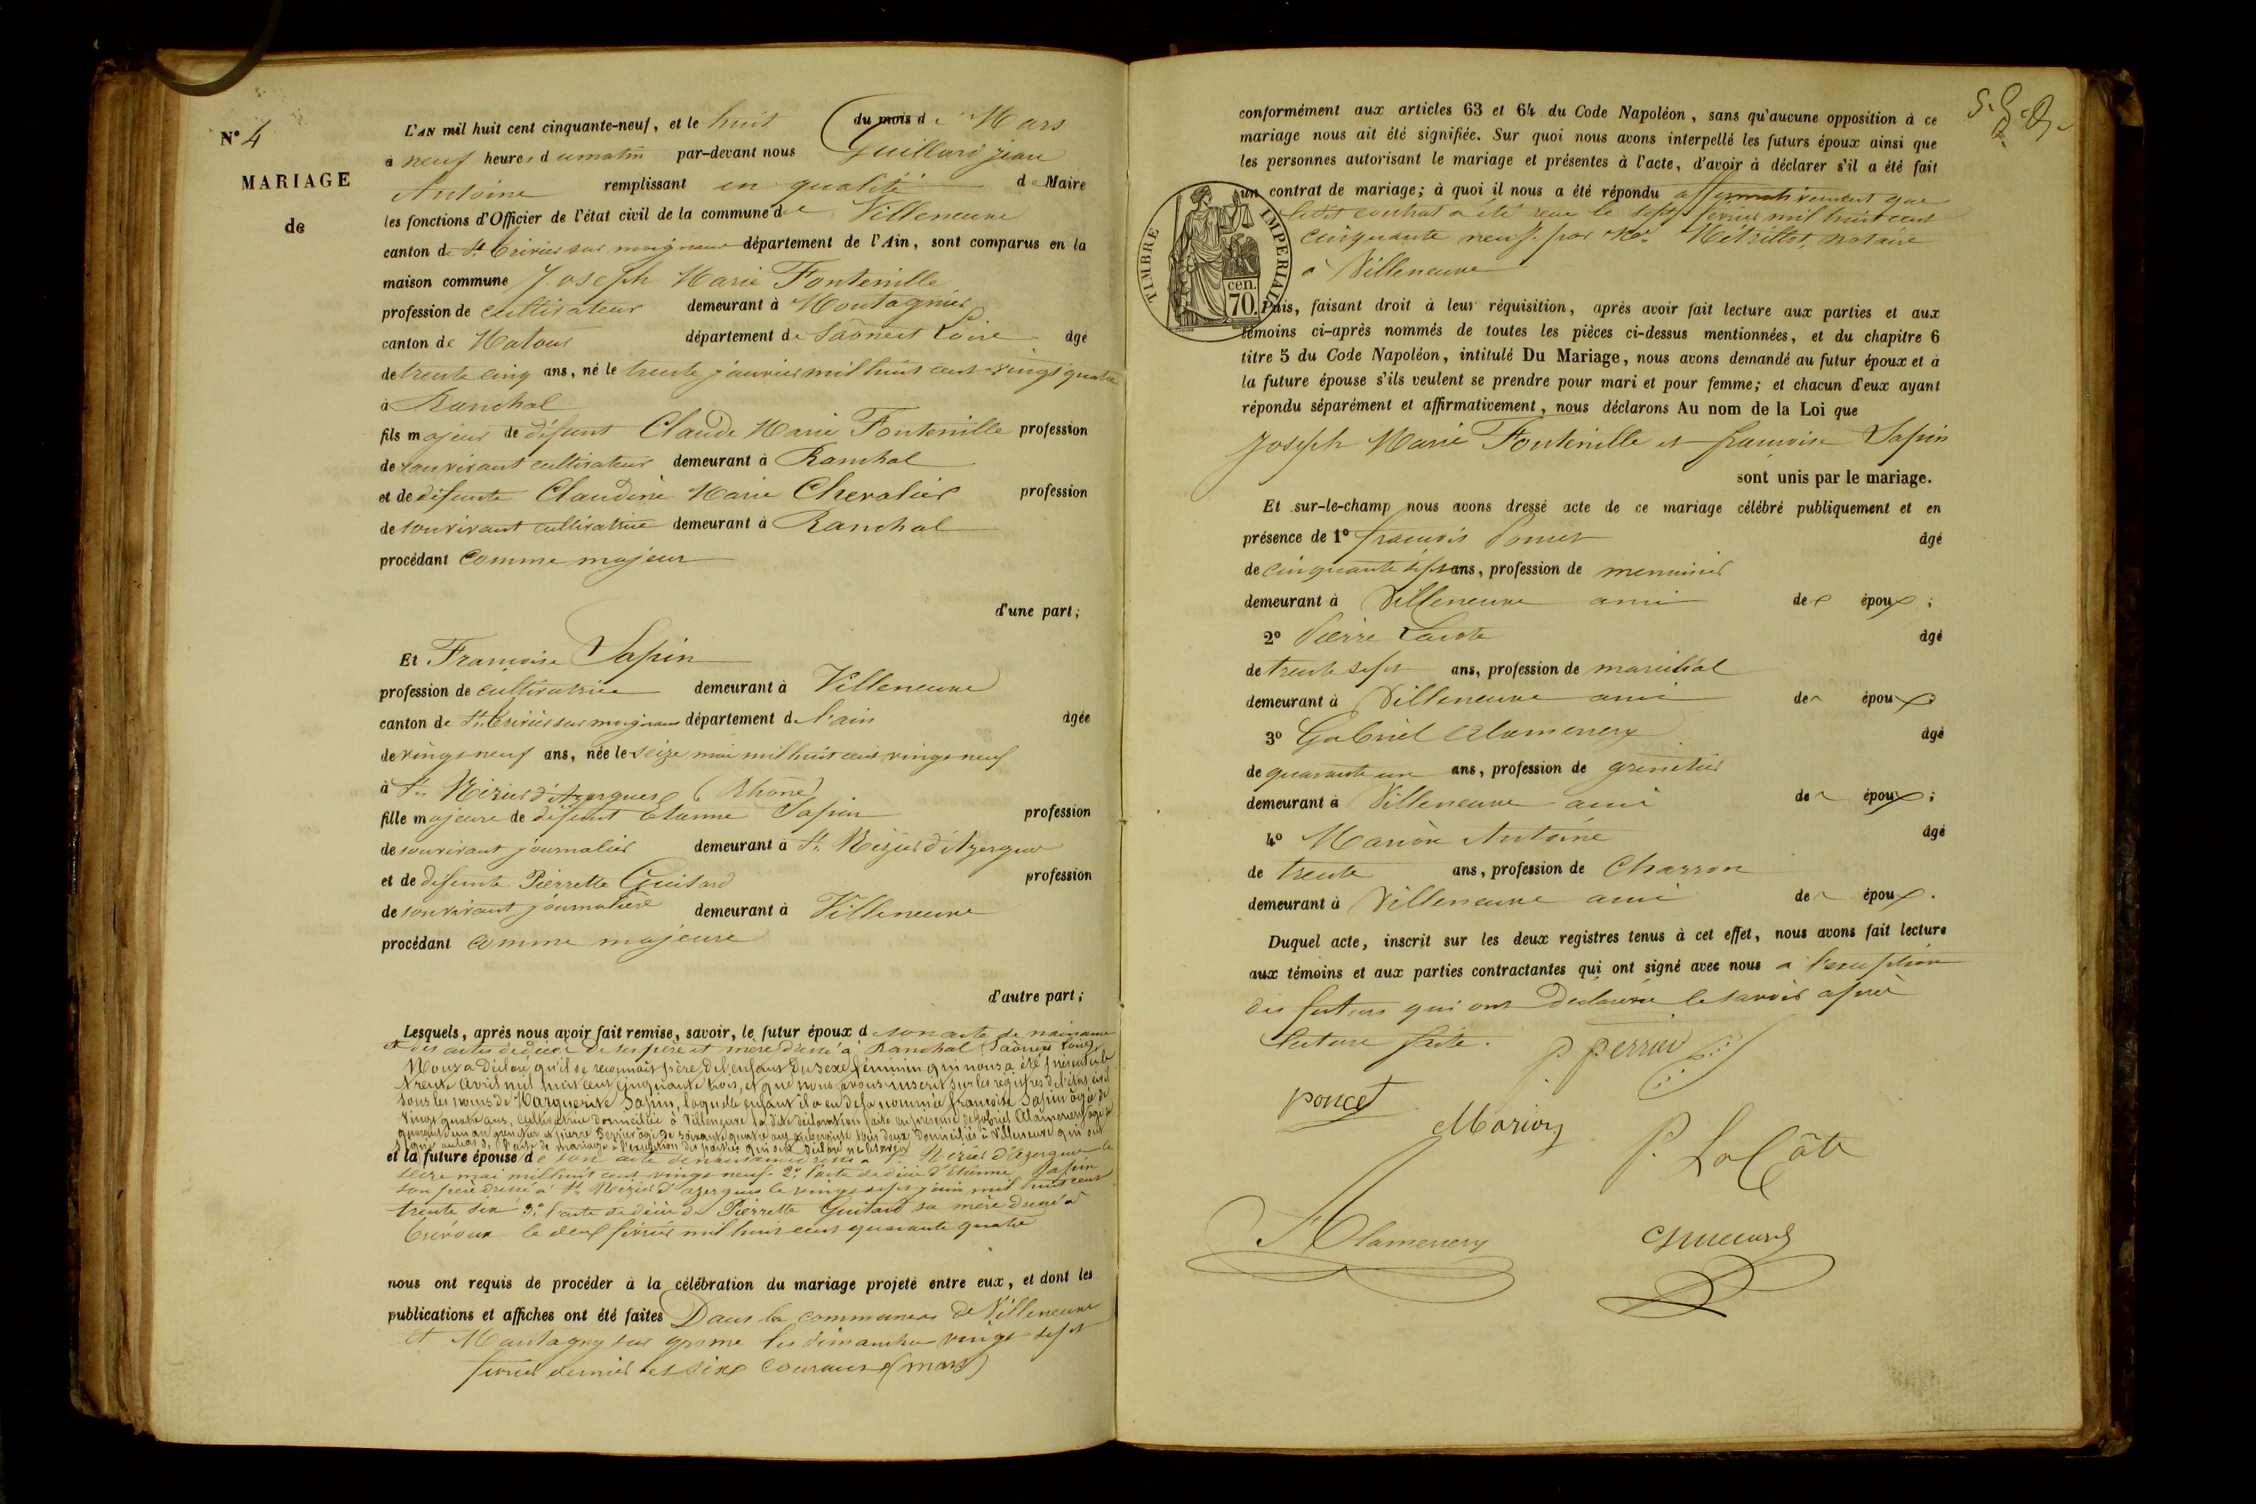 N° 4
MARIAGE
de
L'AN mil huit cent cinquante-neuf, et le huit du mois de Mars
à neuf heures du matin par-devant nous Guillard jean
Antoine remplissant en qualité de Maire
les fonctions d'Officier de l'état civil de la commune de Villeneuve
canton de St Trivier sur moignans département de l'Ain, sont comparus en la
maison commune Joseph Marie Fontenille
profession de cultivateur demeurant à Montagnier
canton de Matour département de Saône et Loire âgé
de trente cinq ans, né le trente janvier mil huit cent vingt quatre
à Ranchal
fils majeur de défunt Claude Marie Fontenille profession
de son vivant cultivateur demeurant à Ranchal
et de défunte Claudine Marie Chevalier profession
de son vivant cultivatrice demeurant à Ranchal
procédant comme majeur
d'une part;
Et Françoise Sapin
profession de cultivatrice demeurant à Villeneuve
canton de St Trivier sur moignans département de l'ain âgée
de vingt neuf ans, née le seize mai mil huit cent vingt neuf
à St Nizier d'Azergues (Rhône)
fille majeure de défunt Etienne Sapin profession
de son vivant journalier demeurant à St Nizier d'Azergues
et de défunte Pierrette Guitard profession
de son vivant journalière demeurant à Villeneuve
procédant comme majeure
d'autre part;
Lesquels, après nous avoir fait remise, savoir, le futur époux de son acte de naissance
et des actes de décès de ses père et mère dressé à Ranchal (Saône et Loire)
Nous a déclaré qu'il se reconnait père de l'enfant du sexe féminin qui nous a été présenté le
trente Avril mil huit cent cinquante trois, et que nous avons inscrit sur les registres de l'état civil
sous les noms de Marguerite Sapin, laquelle enfant il a eu de la nommée françoise Sapin âgée de
vingt quatre ans, cultivatrice domiciliée à Villeneuve la dite déclaration faite en présence de Gabriel Alamenery âgé de
quarante un an grenetier et pierre Perrier âgé de soixante quatre ans tous deux domiciliés à Villeneuve qui ont
signé l'acte de mariage à l'exception des parties qui ont déclaré ne le savoir
et la future épouse de son acte de naissance dressé à St Nizier d'Azergues le
seize mai mil huit cent vingt neuf. 2° l'acte de décès d'Etienne Sapin
son père dressé à St Nizier d'azergues le vingt sept juin mil huit cent
trente six 3° l'acte de décès de Pierrette Guitard sa mère dressé à
Trévoux le deux février mil huit cent quarante quatre
nous ont requis de procéder à la célébration du mariage projeté entre eux, et dont les
publications et affiches ont été faites Dans les communes de Villeneuve
et Montagny sur grosne les dimanches vingt sept
février dernier et six courant (mars)
conformément aux articles 63 et 64 du Code Napoléon, sans qu'aucune opposition à ce
mariage nous ait été signifiée. Sur quoi nous avons interpellé les futurs époux ainsi que
les personnes autorisant le mariage et présentes à l'acte, d'avoir à déclarer s'il a été fait
un contrat de mariage; à quoi il nous a été répondu affirmativement que
ledit contrat a été reçu le sept février mil huit cent
cinquante neuf par Me Métrillot, notaire
à Villeneuve
TIMBRE IMPERIAL
cen.
70.
Puis, faisant droit à leur réquisition, après avoir fait lecture aux parties et aux
témoins ci-après nommés de toutes les pièces ci-dessus mentionnées, et du chapitre 6
titre 5 du Code Napoléon, intitulé Du Mariage, nous avons demandé au futur époux et à
la future épouse s'ils veulent se prendre pour mari et pour femme; et chacun d'eux ayant
répondu séparément et affirmativement, nous déclarons Au nom de la Loi que
Joseph Marie Fontenille et françoise Sapin
sont unis par le mariage.
Et sur-le-champ nous avons dressé acte de ce mariage célébré publiquement et en
présence de 1° françois Poncet âgé
de cinquante sept ans, profession de menuisier
demeurant à Villeneuve ami des époux;
2° Pierre Lacote âgé
de trente sept ans, profession de maréchal
demeurant à Villeneuve ami des époux
3° Gabriel Alamenery âgé
de quarante un ans, profession de grenetier
demeurant à Villeneuve ami des époux;
4° Marion Antoine âgé
de trente ans, profession de Charron
demeurant à Villeneuve ami des époux.
Duquel acte, inscrit sur les deux registres tenus à cet effet, nous avons fait lecture
aux témoins et aux parties contractantes qui ont signé avec nous à l'exception
des futurs qui ont déclaré ne le savoir après
lecture faite.
P Perrier
poncet
Marion
P. La Côte
Alamenery
Guillard